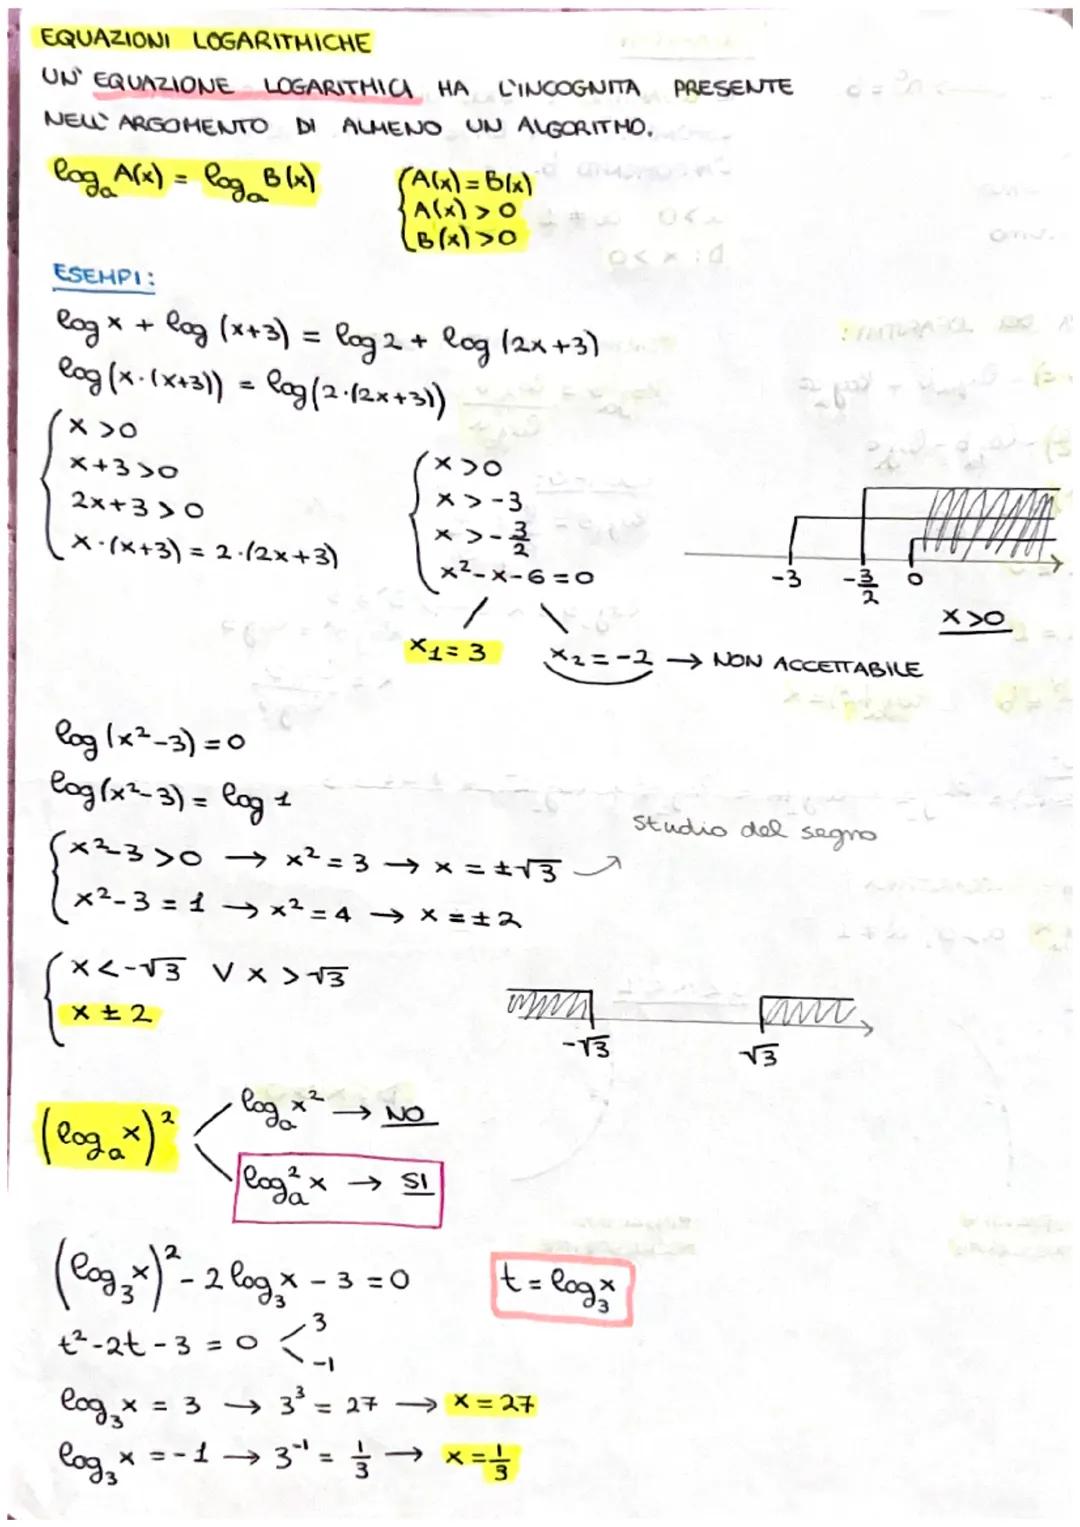 EQUAZIONI LOGARITMICHE
UN' EQUAZIONE LOGARITMICA HA L'INCOGNITA PRESENTE
NELL' ARGOMENTO DI ALMENO UN ALGORITMO.
logₐ A(x) = logₐ B(x)
{A(x) = B(x)
A(x) > 0
B(x) > 0
ESEMPI:
log x + log (x+3) = log 2 + log (2x+3)
log (x·(x+3)) = log (2·(2x+3))
{x >0
x+3 >0
2x+3 > 0
x·(x+3) = 2·(2x+3)
{x >0
x > -3
x > -3/2
x² - x - 6 = 0
-3 -3/2 0
x >0
x₁ = 3 x₂ = -2 → NON ACCETTABILE
log (x²-3) = 0
log (x²-3) = log 1
studio del segno
{x²-3 >0 → x² = 3 → x = ±√3
x²-3 = 1 → x² = 4 → x = ±2
{x < -√3 V x > √3
x ± 2
-√3 √3
(logₐ x)²
logₐ x² → NO
logₐ² x → SI
(log₃ x)² - 2 log₃ x - 3 = 0 t = log₃ x
t² - 2t - 3 = 0 < 3
-1
log₃ x = 3 → 3³ = 27 → x = 27
log₃ x = -1 → 3⁻¹ = 1/3 → x = 1/3